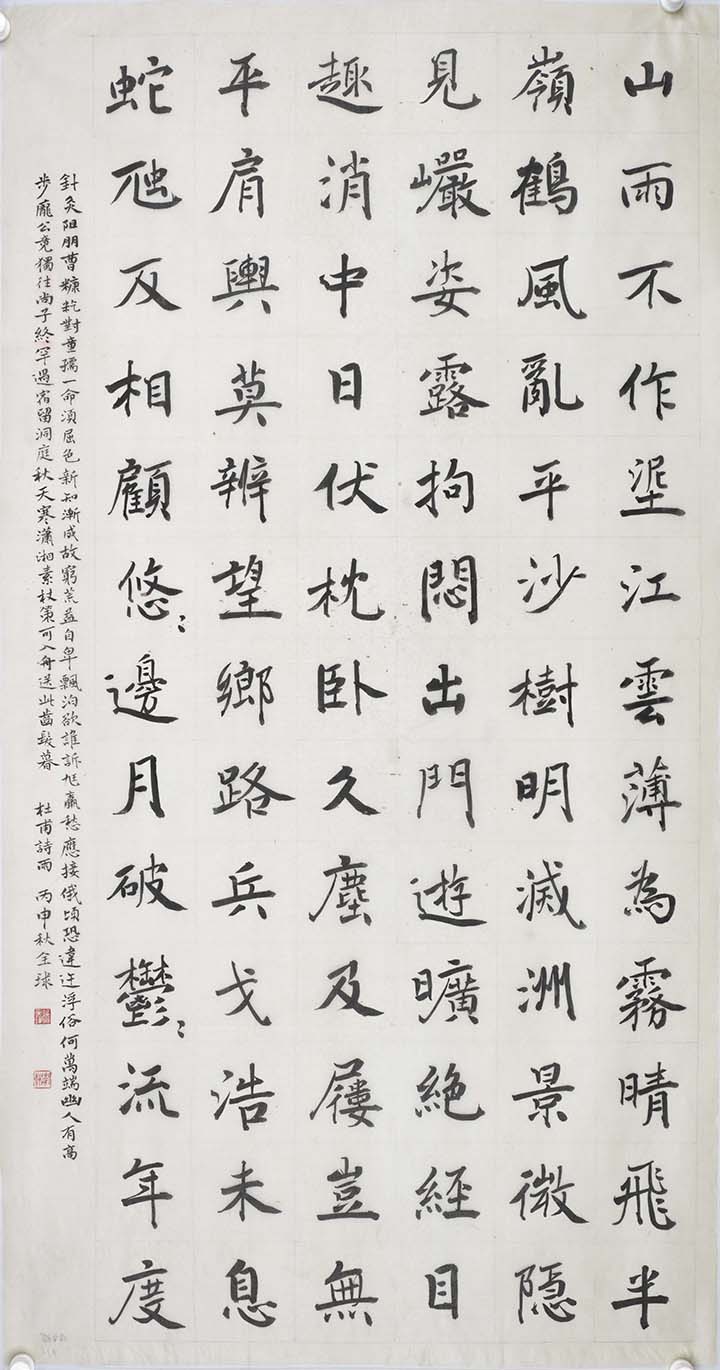 山雨不作埿江雲薄為霧晴飛半
嶺鶴風亂平沙樹明滅洲景微隱
見巗姿露拘悶出門遊曠絕經目
趣消中日伏枕臥久塵及屨豈無
平肩輿莫辨望鄉路兵戈浩未息
蛇虺反相顧悠〻邊月破鬱〻流年度
針灸阻朋曹糠籺對童孺一命須屈色新知漸成故窮荒益自卑飄泊欲誰訴尪羸愁應接俄頃恐違迕浮俗何萬端幽人有高
步龐公竟獨往尚子終罕遇宿留洞庭秋天寒瀟湘素杖策可入舟送此齒髮暮 杜甫詩雨 丙申秋全球